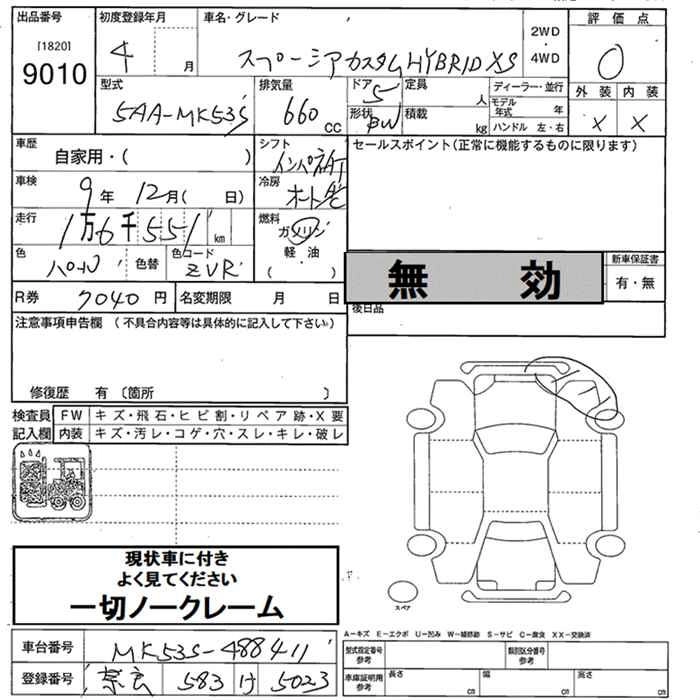 出品番号
[1820]
9010
初度登録年月
4 月
車名・グレード
スペーシアカスタムHYBRID XS
2WD
4WD
評価点
0
型式
5AA-MK53S
排気量
660 CC
ドア 5
形状 BW
定員 人
積載 kg
ディーラー・並行
モデル年式 年
ハンドル 左・右
外装 内装
X X
車歴
自家用・( )
シフト
インパネAT
セールスポイント(正常に機能するものに限ります)
車検
9年 12月( 日)
冷房
オート
走行
1万6千551 km
燃料
ガソリン
軽油
( )
色
パール
色替
色コード
ZVR
無効
新車保証書
有・無
R券 7040円
名変期限 月 日
後日品
注意事項申告欄 (不具合内容等は具体的に記入して下さい)
修復歴 有 〔箇所 〕
検査員
記入欄
FW キズ・飛石・ヒビ割・リペア跡・X要
内装 キズ・汚レ・コゲ・穴・スレ・キレ・破レ
現状車に付き
よく見てください
一切ノークレーム
スペア
A-キズ E-エクボ U-凹み W-補修跡 S-サビ C-腐食 XX-交換済
車台番号 MK53S-488411
登録番号 奈良 583 け 5023
型式指定番号
参考
類別区分番号
参考
車庫証明用
参考
長さ cm
幅 cm
高さ cm